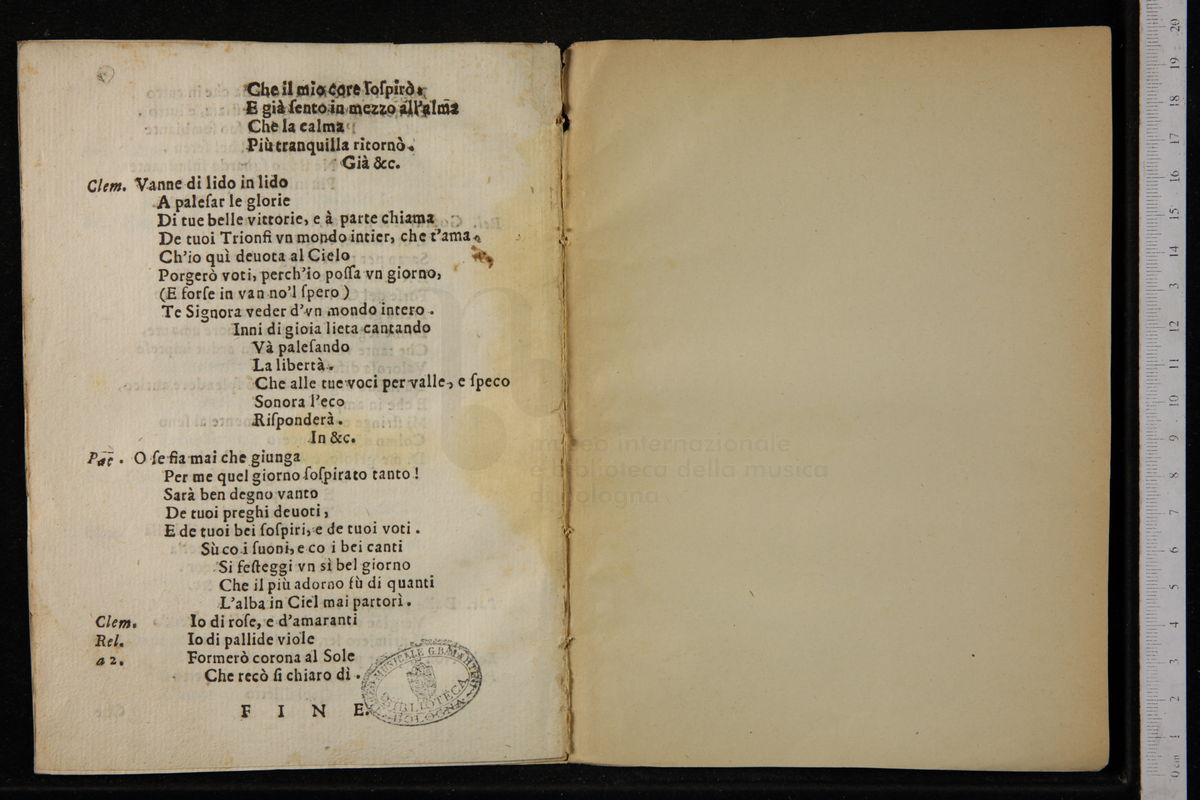 Che il mio core ſoſpirò.
E già ſento in mezzo all'alma
Che la calma
Più tranquilla ritornò.
Già &c.
Clem. Vanne di lido in lido
A paleſar le glorie
Di tue belle vittorie, e à parte chiama
De tuoi Trionfi vn mondo intier, che t'ama.
Ch'io quì deuota al Cielo
Porgerò voti, perch'io poſſa vn giorno,
(E forſe in van no'l ſpero)
Te Signora veder d'vn mondo intero.
Inni di gioia lieta cantando
Và paleſando
La libertà.
Che alle tue voci per valle, e ſpeco
Sonora l'eco
Riſponderà.
In &c.
Pac. O ſe fia mai che giunga
Per me quel giorno ſoſpirato tanto!
Sarà ben degno vanto
De tuoi preghi deuoti,
E de tuoi bei ſoſpiri, e de tuoi voti.
Sù co i ſuoni, e co i bei canti
Si feſteggi vn sì bel giorno
Che il più adorno fù di quanti
L'alba in Ciel mai partorì.
Clem. Io di roſe, e d'amaranti
Rel. Io di pallide viole
a 2. Formerò corona al Sole
Che recò ſi chiaro dì.
FINE.
MUSICALE G.B. MARTINI
BIBLIOTECA
BOLOGNA
museo internazionale
e biblioteca della musica
di bologna